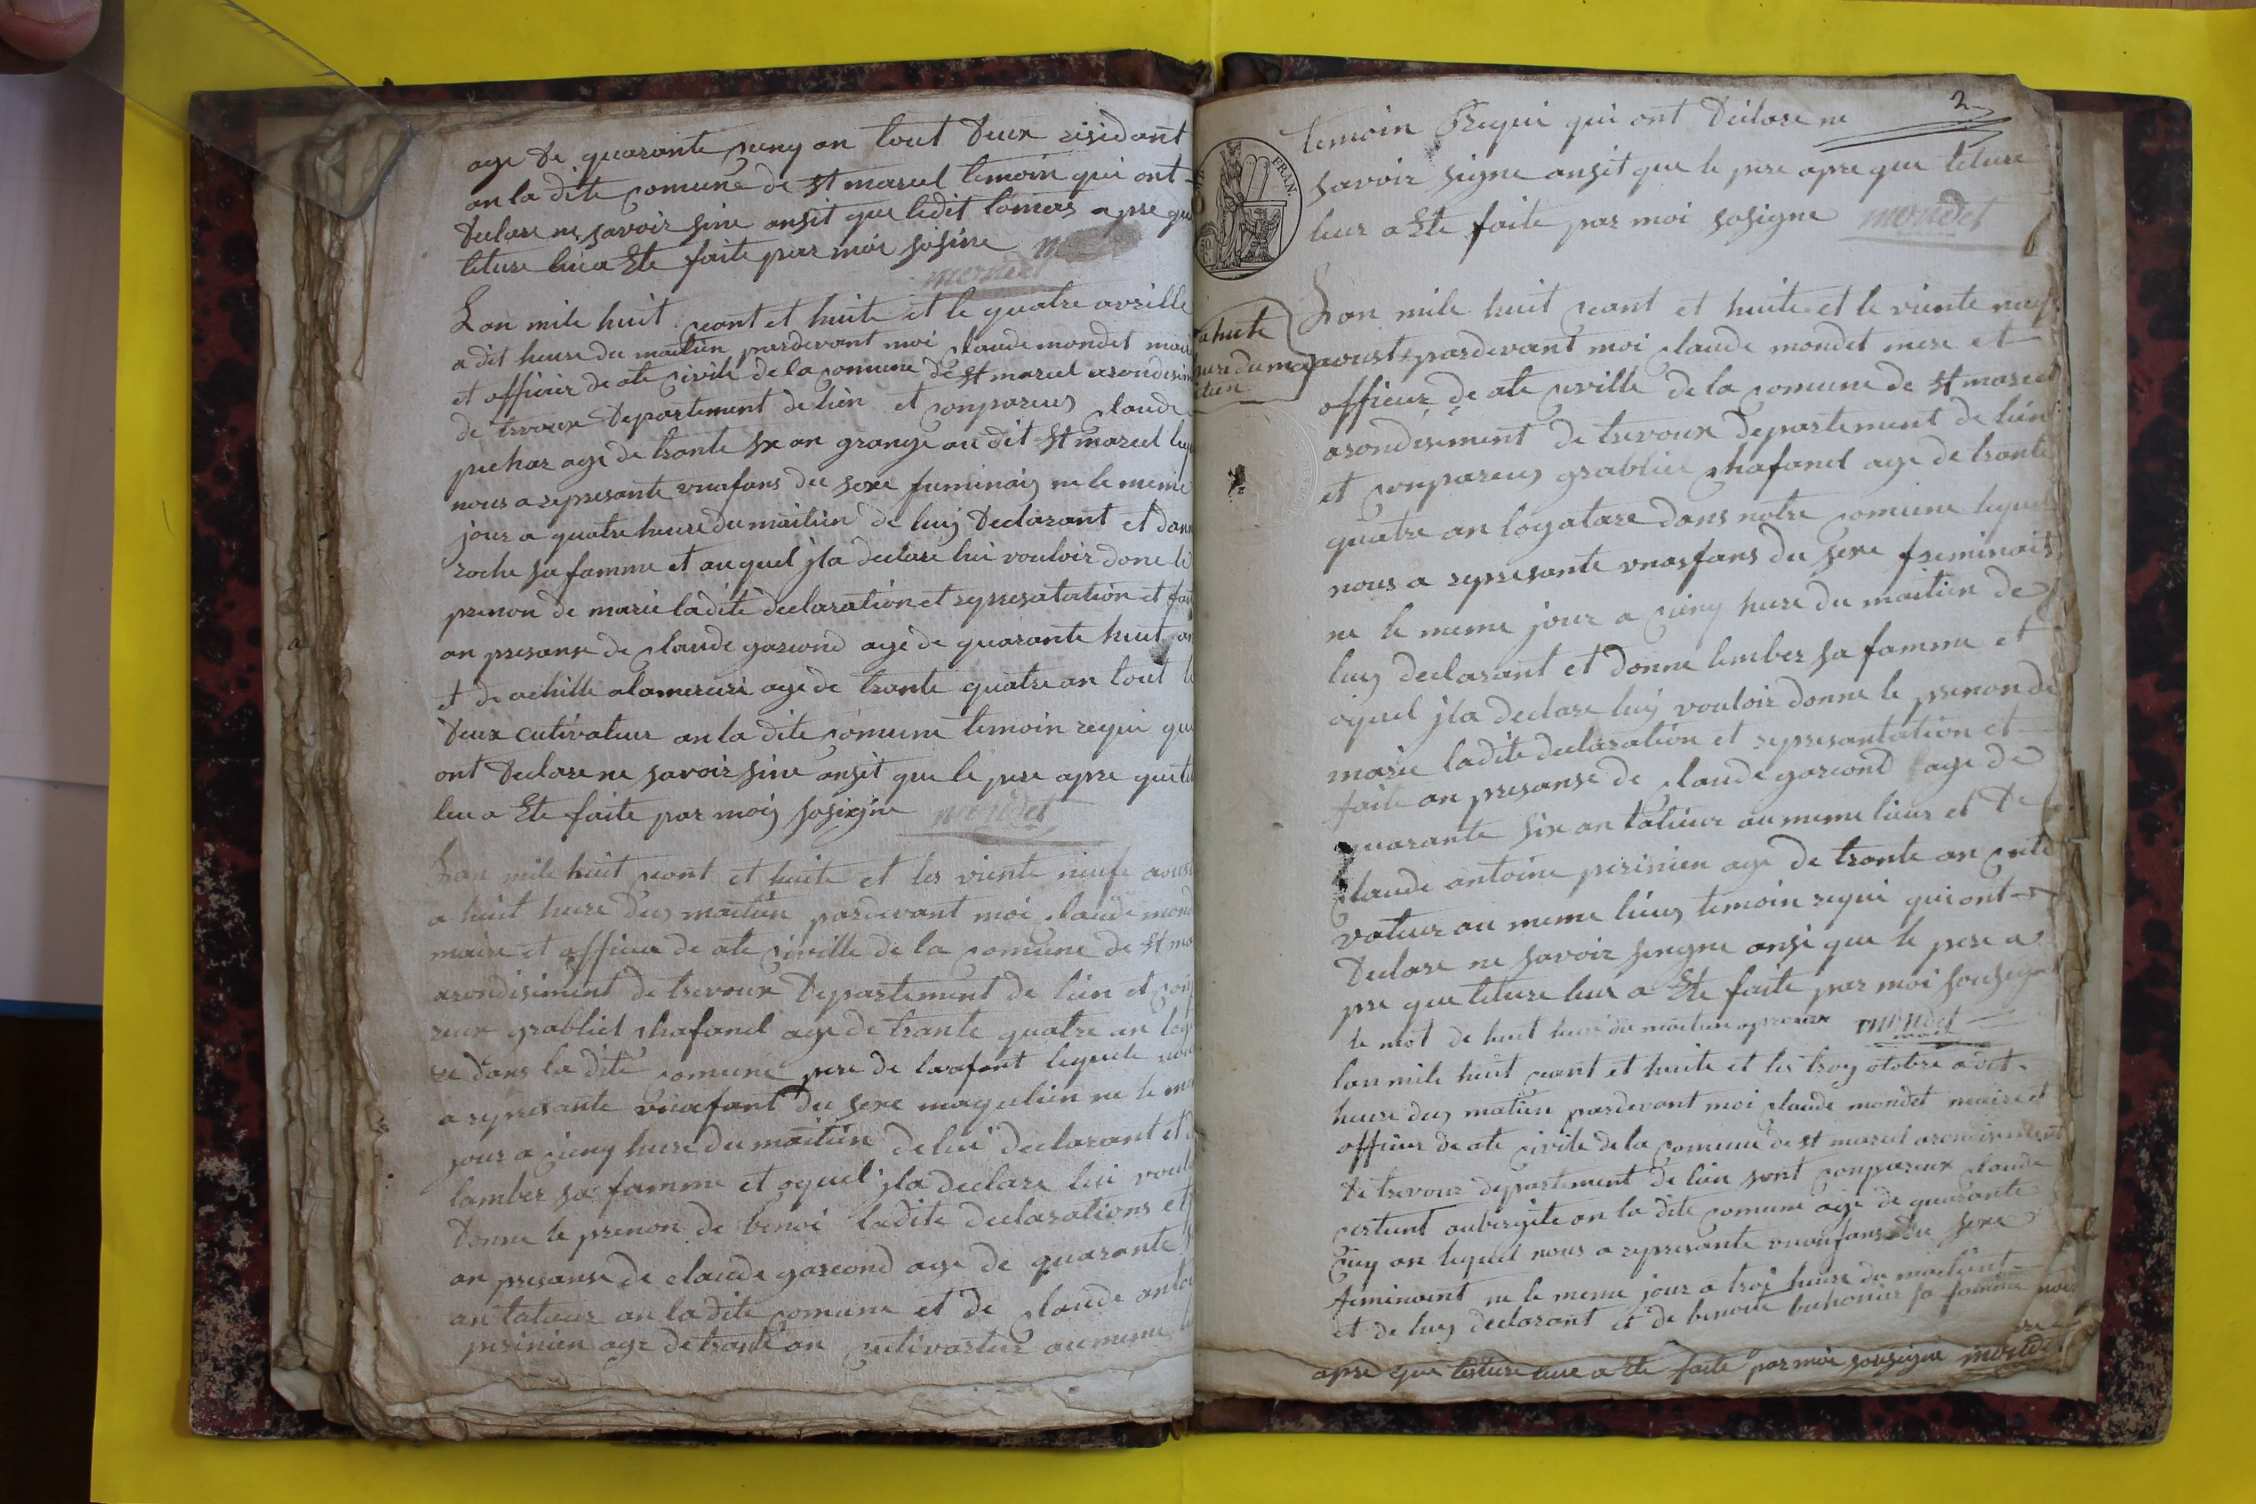 age de quarante sinq an tout deux residant
an la dite comune de st marcel temoin qui ont
declare ne savoir sine ansit que ledit lomers apre que
leture luia Ete faite par moi sosine
mondet
Lan mile huit ceant et huite et le quatre avrille
a dit heure du maitien pardevant moi claude mondet maire
et officier de ate civile de la comune de st marcel arondisim
de trevoux Departement de lien et conpareus claude
pichar age de trante six an grange au dit st marcel leq
nous a represante vnafans du sexe fuminais ne le meme
jour a quatre heure du maitien de luy declarant et dan
roche sa famme et auquel jla declare lui vouloir done le
prenon de marie ladite declaration et represatation et fait
an presanse de claude gascond age de quarante huit an
et de achille alamerciri age de trante quatre an tout le
deux cutivateur an la dite comune temoin requi qui
ont declare ne savoir sine ansit que le pere apre que
leu a Ete faite par moy sosigne mondet
Lan mile huit ceant et huite et les viente neufe aoust
a huit heure dus maitien pardevant moi claude mond
maire et officier de ate civille de la comune de st ma
arondisiment de trevoux Departement de lien et conp
reux grabliel chafanel age de trante quatre an loga
re dans la dite comune pere de lanfant lequele nous
a represante vnafant du sexe maqulien ne le me
jour a cienq heure du maitien de lui declarant et d
lamber sa famme et oquel jla declare lui voulo
donne le prenon de benoi ladite declarations et
an presanse de claude gascond age de quarante
an talieur an ladite comune et de claude anto
perinien age de trante an cutivarteur au meme
2
temoin Requi qui ont declare ne
savoir signe ansit que le pere apre que leture
leur a Ete faite par moi sosigne mondet
FRAN.
a huite
heure du ma
itien
Lan mile huit ceant et huite et le viente neuf
aoust pardevant moi claude mondet mere et
officier de ate civille de la comune de st marcel
arondisiment de trevoux departement de lien
et conpareus grabliel chafanel age de trante
quatre an logatare dans notre comune lequel
nous a represante vnasfans du sexe freminais
ne le meme jour a cienq heure du maitien de
luy declarant et donne lember sa famme et
oquel jla declare luy vouloir donne le prenon de
marie ladite declaration et represantation et
faite an presanse de claude gascond age de
quarante six an talieur au meme lieus et de
claude antoine perinien age de trante an cuti
vateur au meme lieus temoin requi qui ont
declare ne savoir singne ansi que le pere a
pre que leture leur a Ete faite par moi sousigne
le mot de huit heure du maitien aprouve mondet
lan mile huit ceant et huite et les troy otobre a dit
heure dus matien pardevant moi claude mondet maire et
officier de ate civile de la comune de st marcel arondisiment
de trevoux departement de lien sont conpareux claude
certient aubergite an la dite comune age de quarante
cinq an lequel nous a represante vnanfans du sexe
feminient ne le meme jour a troi heure du matient
et de luy declarant et de benoite buhonier sa famme
apre que lesture leur a Ete faite par moi sousigne mondet